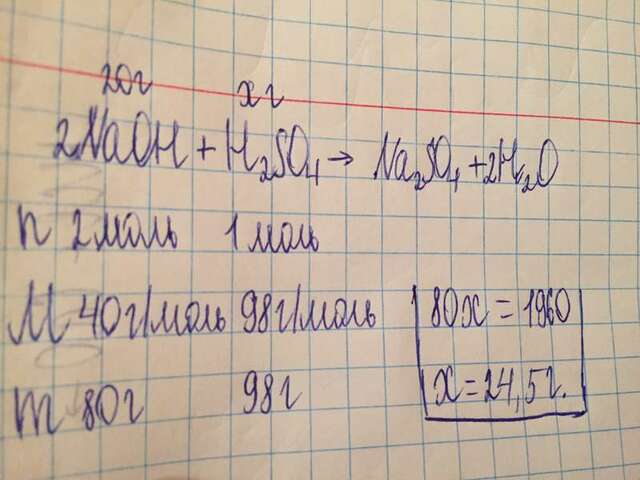 20г xг
2NaOH + H₂SO₄ → Na₂SO₄ + 2H₂O
n 2моль 1моль
M 40г/моль 98г/моль
m 80г 98г
80x = 1960
x = 24,5г.